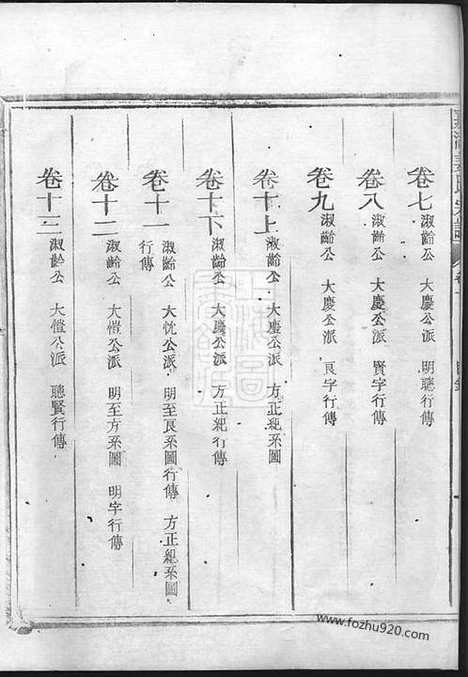 卷七 淑齡公 大慶公派 明聽行傳
卷八 淑齡公 大慶公派 賢字行傳
卷九 淑齡公 大慶公派 良字行傳
卷十上 淑齡公 大慶公派 方正紀行傳
卷十下 淑齡公 大慶公派 方正紀行傳
卷十一 淑齡公 大忱公派 明至良系圖行傳 方正紀系圖
行傳
卷十二 淑齡公 大愷公派 明至方系圖 明字行傳
卷十三 淑齡公 大愷公派 聽賢行傳
www.fozhu920.com